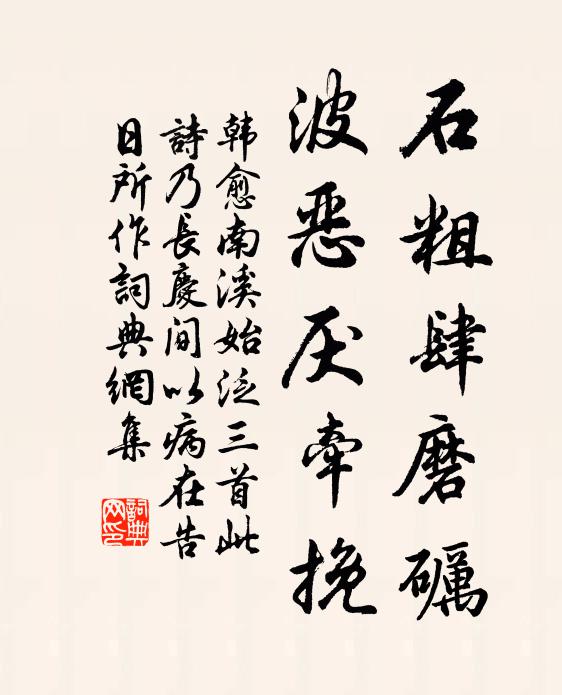 石粗肆磨礪
波惡厌牵挽
韩愈南溪始泛三首此
詩乃長慶间以病在告
日所作詞典網集
詞典网印